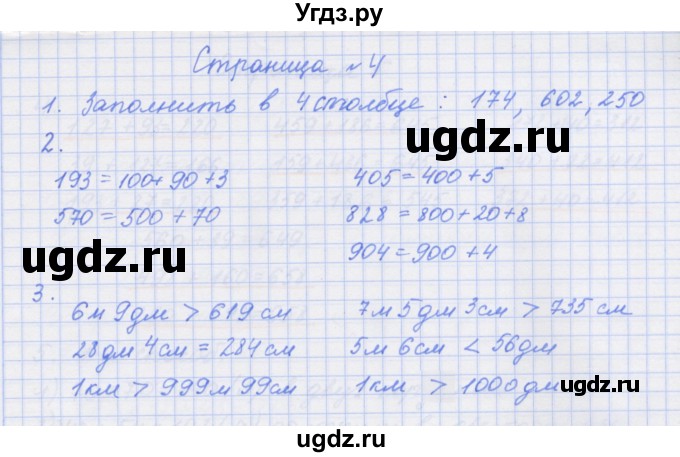 Угдз.ру
Страница №4
1. Заполнить в 4 столбце : 174, 602, 250
ugdz.ru
2.
193 = 100 + 90 + 3 405 = 400 + 5
570 = 500 + 70 828 = 800 + 20 + 8
ugdz.ru ugdz.ru
904 = 900 + 4
3.
6 м 9 дм > 619 см 7 м 5 дм 3 см > 735 см
28 дм 4 см = 284 см 5 м 6 см < 56 дм
1 км > 999 м 99 см 1 км > 1000 дм
ugdz.ru
ugdz.ru